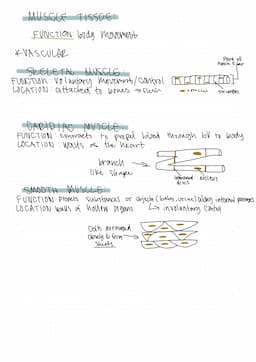 MUSCLE TISSUE
FUNCTION: body movement
*VASCULAR
SKELETAL MUSCLE
FUNCTION: voluntary movement/control
LOCATION: attached to bones → skin
Part of
muscle fiber
nucleus
striations
CARDIAC MUSCLE
FUNCTION: contracts to propel blood through bv to body
LOCATION: walls of the heart
branch
like shape
intercalated
discs
nucleus
SMOOTH MUSCLE
FUNCTION: propels substances or objects (babies, urine) along internal passages
LOCATION: walls of hollow organs ↳ involuntary control
Cells arranged
closely to form
sheets